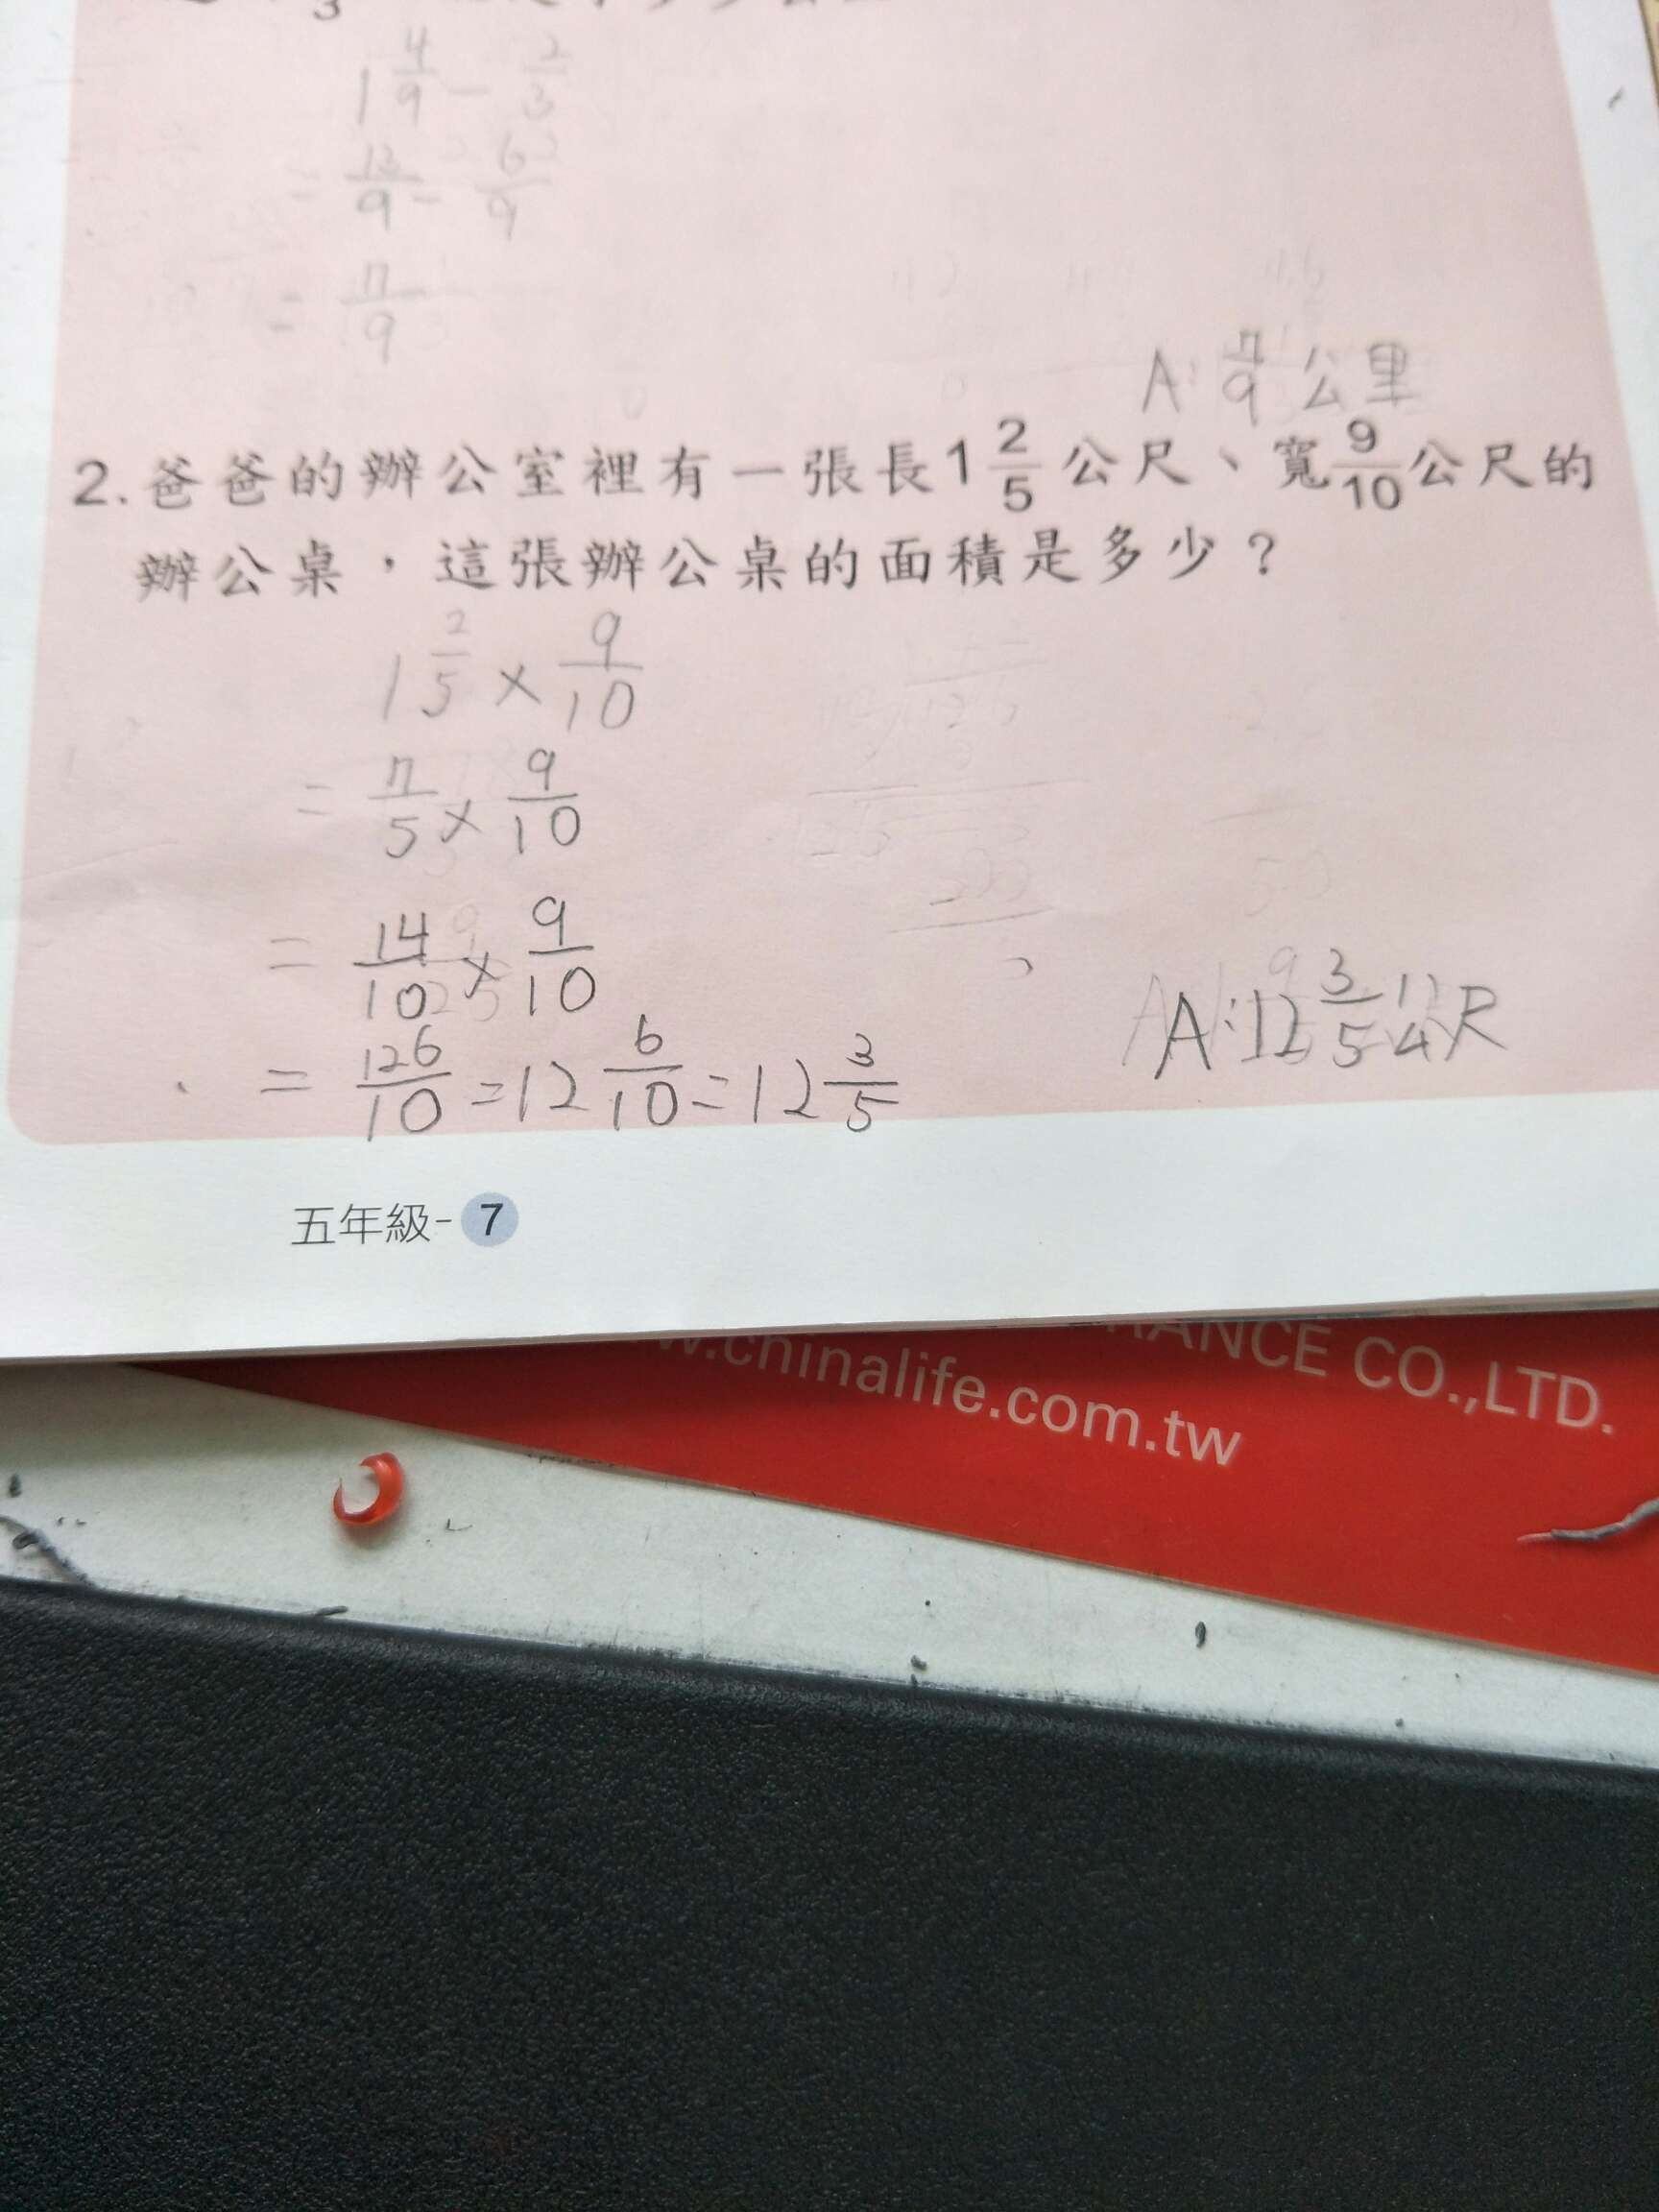 1 4/9 - 2/3
= 13/9 - 6/9
= 7/9
A: 7/9 公里
2. 爸爸的辦公室裡有一張長1 2/5 公尺、寬 9/10 公尺的
辦公桌，這張辦公桌的面積是多少？
1 2/5 × 9/10
= 7/5 × 9/10
= 14/10 × 9/10
= 126/10 = 12 6/10 = 12 3/5
A: 12 3/5 公尺
五年級-7
RANCE CO.,LTD.
w.chinalife.com.tw